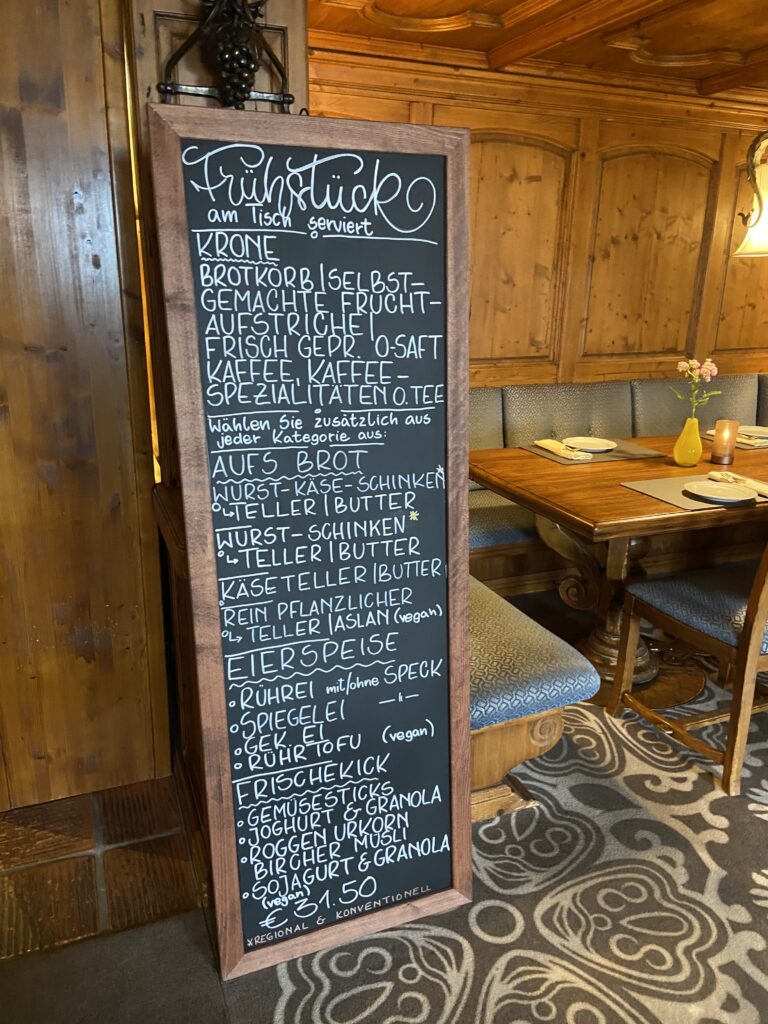 Frühstück
am Tisch serviert
KRONE
BROTKORB | SELBST-
GEMACHTE FRUCHT-
AUFSTRICHE |
FRISCH GEPR. O-SAFT
KAFFEE, KAFFEE-
SPEZIALITÄTEN O. TEE
Wählen Sie zusätzlich aus
jeder Kategorie aus:
AUFS BROT
WURST-KÄSE-SCHINKEN*
↳ TELLER | BUTTER
WURST-SCHINKEN*
↳ TELLER | BUTTER
KÄSETELLER | BUTTER
REIN PFLANZLICHER
↳ TELLER | ASLAN (vegan)
EIERSPEISE
• RÜHREI mit/ohne SPECK
• SPIEGELEI —"—
• GEK. EI
• RÜHRTOFU (vegan)
FRISCHEKICK
• GEMÜSESTICKS
• JOGHURT & GRANOLA
• ROGGEN URKORN
BIRCHER MÜSLI
• SOJAGURT & GRANOLA
(vegan)
€ 31.50
*REGIONAL & KONVENTIONELL